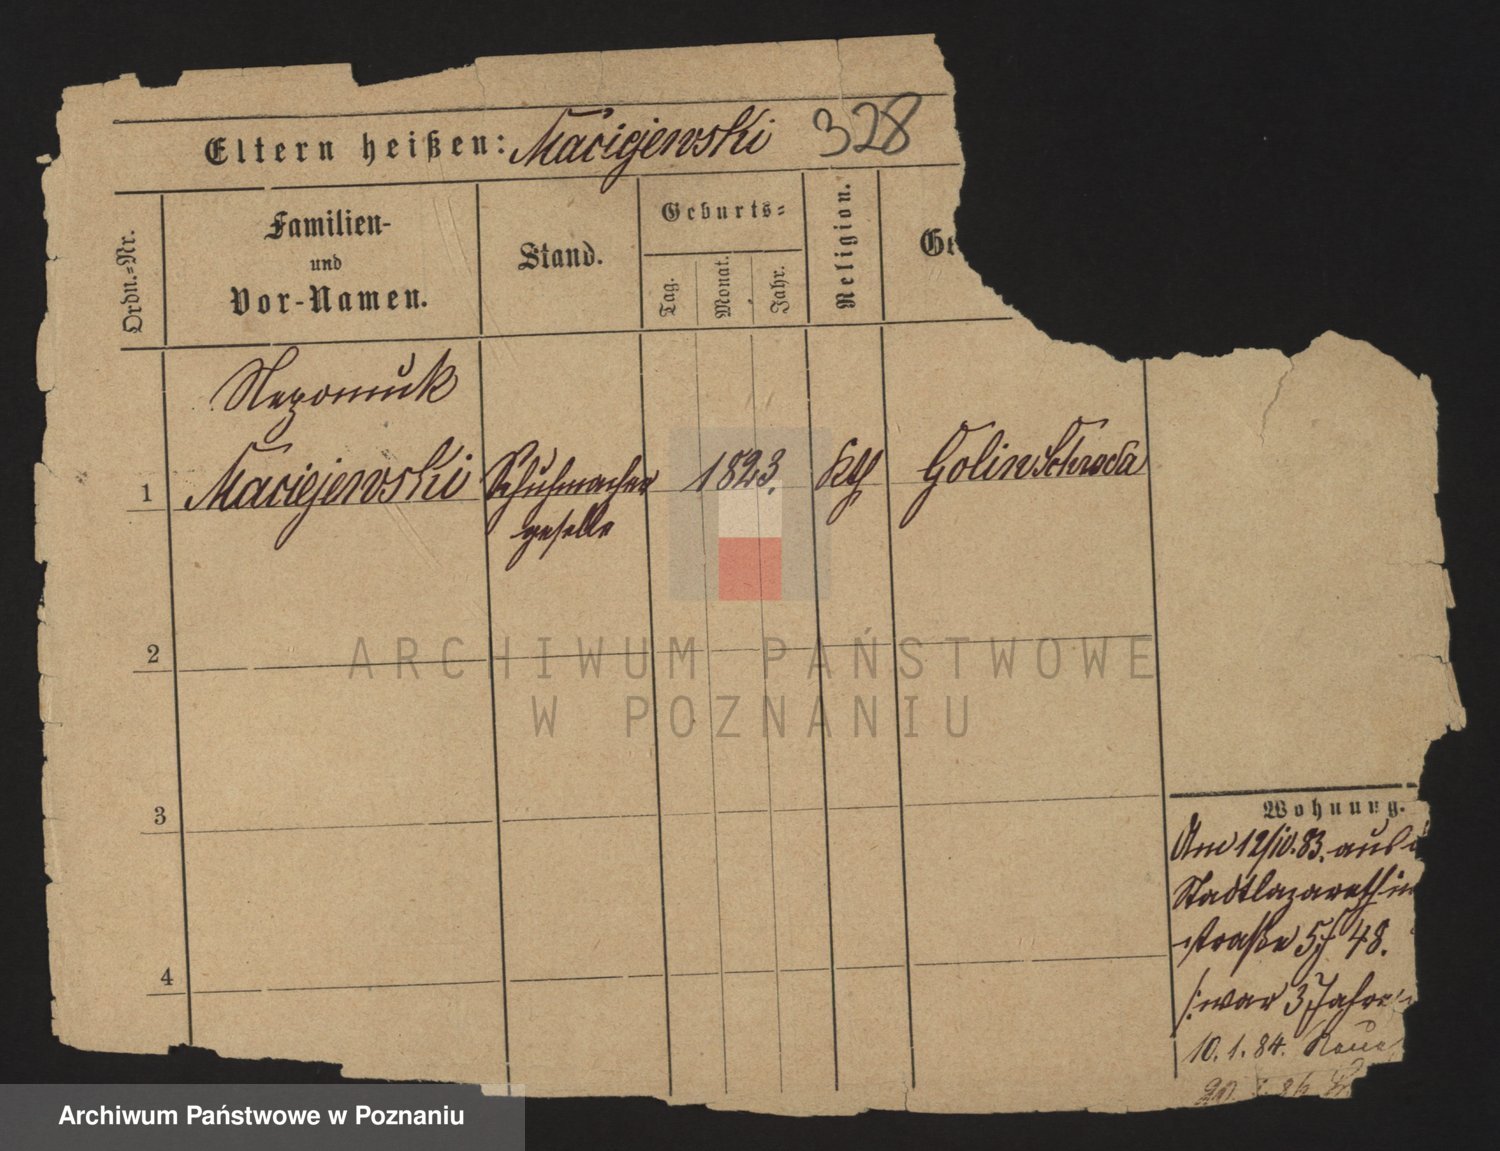 Eltern heißen: Maciejewski 328
Ordn.=Nr.
Familien-
und
Vor-Namen.
Stand.
Geburts=
Tag.
Monat.
Jahr.
Religion.
Ge
Nepomuk
1 Maciejewski Schuhmacher 1823. kth Golin Schroda
geselle
2
3
4
Wohnung.
Am 12/10.83. aus
Stadtlazareth in
straße 5 48.
/: war 3 Jahre
10.1.84.
ARCHIWUM PAŃSTWOWE
W POZNANIU
Archiwum Państwowe w Poznaniu